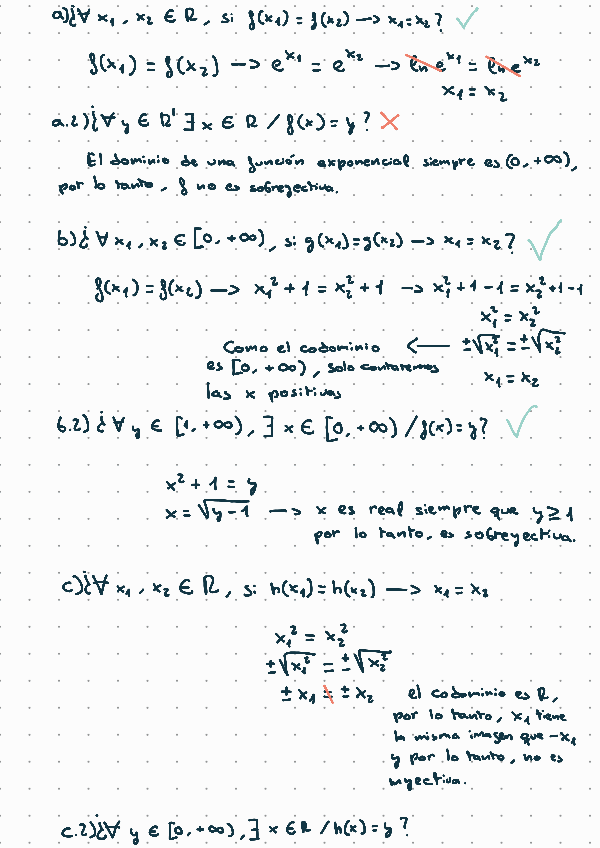 a) ¿∀ x₁, x₂ ∈ ℝ, si f(x₁) = f(x₂) —> x₁=x₂?
f(x₁) = f(x₂) —> e^x₁ = e^x₂ —> ln e^x₁ = ln e^x₂
x₁ = x₂
a.2) ¿∀ y ∈ ℝ' ∃ x ∈ ℝ / f(x) = y?
El dominio de una función exponencial siempre es (0, +∞),
por lo tanto, f no es sobreyectiva.
b) ¿∀ x₁, x₂ ∈ [0, +∞), si g(x₁)=g(x₂) —> x₁ = x₂?
f(x₁) = f(x₂) —> x₁² + 1 = x₂² + 1 —> x₁² + 1 - 1 = x₂² + 1 - 1
x₁² = x₂²
Como el codominio <— ±√x₁² = ±√x₂²
es [0, +∞), solo contaremos
x₁ = x₂
las x positivas
b.2) ¿∀ y ∈ [1, +∞), ∃ x ∈ [0, +∞) / f(x) = y?
x² + 1 = y
x = √y-1 —> x es real siempre que y ≥ 1
por lo tanto, es sobreyectiva.
c) ¿∀ x₁, x₂ ∈ ℝ, si h(x₁) = h(x₂) —> x₁ = x₂
x₁² = x₂²
±√x₁² = ±√x₂²
±x₁ = ±x₂ el codominio es ℝ,
por lo tanto, x₁ tiene
la misma imagen que -x₁
y por lo tanto, no es
inyectiva.
c.2) ¿∀ y ∈ [0, +∞), ∃ x ∈ ℝ / h(x) = y?